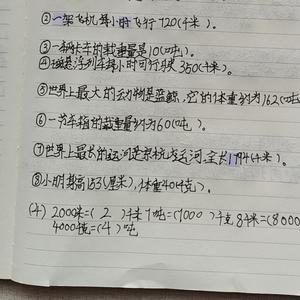 ②一架飞机每小时飞行720(千米)。
③一辆卡车的载重量是10(吨)。
④磁悬浮列车每小时可行驶350(千米)。
⑤世界上最大的动物是蓝鲸,它的体重约为162(吨
⑥一节车箱的载重量约为60(吨)。
⑦世界上最长的运河是京杭大运河,全长1794(千米)。
⑧小明身高153(厘米),体重40(千克)。
(4) 2000米=( 2 )千米 1吨=(1000 )千克 8千米=(8000
4000千克=( 4 )吨